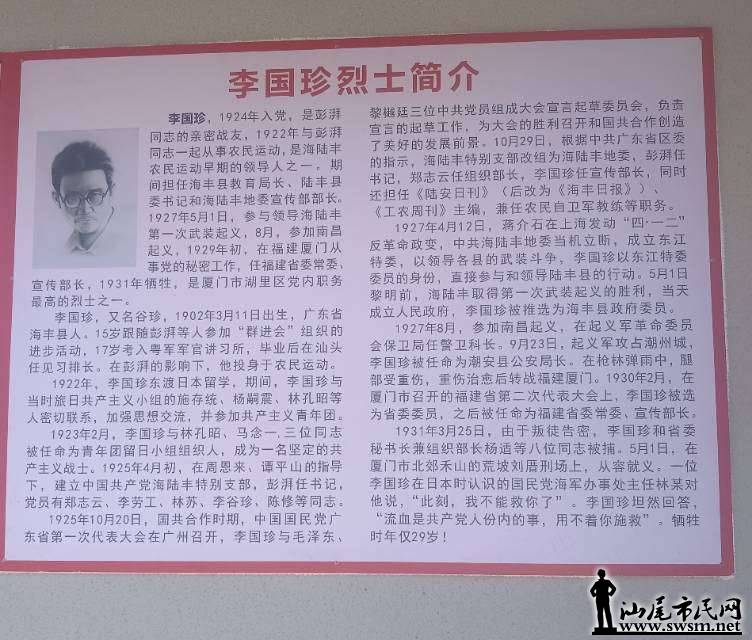 李国珍烈士简介
李国珍，1924年入党，是彭湃
同志的亲密战友，1922年与彭湃
同志一起从事农民运动，是海陆丰
农民运动早期的领导人之一。期
间担任海丰县教育局长、陆丰县
委书记和海陆丰地委宣传部部长。
1927年5月1日，参与领导海陆丰
第一次武装起义，8月，参加南昌
起义，1929年初，在福建厦门从
事党的秘密工作，任福建省委常委、
宣传部长，1931年牺牲，是厦门市湖里区党内职务
最高的烈士之一。
李国珍，又名谷珍，1902年3月11日出生，广东省
海丰县人。15岁跟随彭湃等人参加“群进会”组织的
进步活动，17岁考入粤军军官讲习所，毕业后在汕头
任见习排长。在彭湃的影响下，他投身于农民运动。
1922年，李国珍东渡日本留学，期间，李国珍与
当时旅日共产主义小组的施存统、杨嗣震、林孔昭等
人密切联系，加强思想交流，并参加共产主义青年团。
1923年2月，李国珍与林孔昭、马念一.三位同志
被任命为青年团留日小组组织人，成为一名坚定的共
产主义战士。1925年4月初，在周恩来、谭平山的指导
下，建立中国共产党海陆丰特别支部，彭湃任书记，
党员有郑志云、李劳工、林苏、李谷珍、陈修等同志。
1925年10月20日，国共合作时期，中国国民党广
东省第一次代表大会在广州召开，李国珍与毛泽东、
黎樾廷三位中共党员组成大会宣言起草委员会，负责
宣言的起草工作，为大会的胜利召开和国共合作创造
了美好的发展前景。10月29日，根据中共广东省区委
的指示，海陆丰特别支部改组为海陆丰地委，彭湃任
书记，郑志云任组织部长，李国珍任宣传部长，同时
还担任《陆安日刊》（后改为《海丰日报》）、
《工农周刊》主编，兼任农民自卫军教练等职务。
1927年4月12日，蒋介石在上海发动“四·一二”
反革命政变，中共海陆丰地委当机立断，成立东江
特委，以领导各县的武装斗争，李国珍以东江特委
委员的身份，直接参与和领导陆丰县的行动。5月1日
黎明前，海陆丰取得第一次武装起义的胜利，当天
成立人民政府，李国珍被推选为海丰县政府委员。
1927年8月，参加南昌起义，在起义军革命委员
会保卫局任警卫科长。9月23日，起义军攻占潮州城，
李国珍被任命为潮安县公安局长。在枪林弹雨中，腿
部受重伤，重伤治愈后转战福建厦门。1930年2月，在
厦门市召开的福建省第二次代表大会上，李国珍被选
为省委委员，之后被任命为福建省委常委、宣传部长。
1931年3月25日，由于叛徒告密，李国珍和省委
秘书长兼组织部长杨适等八位同志被捕。5月1日，在
厦门市北郊禾山的荒坡刘厝刑场上，从容就义。一位
李国珍在日本时认识的国民党海军办事处主任林某对
他说，“此刻，我不能救你了”。李国珍坦然回答，
“流血是共产党人份内的事，用不着你施救”。牺牲
时年仅29岁！
汕尾市民网
www.swsm.net